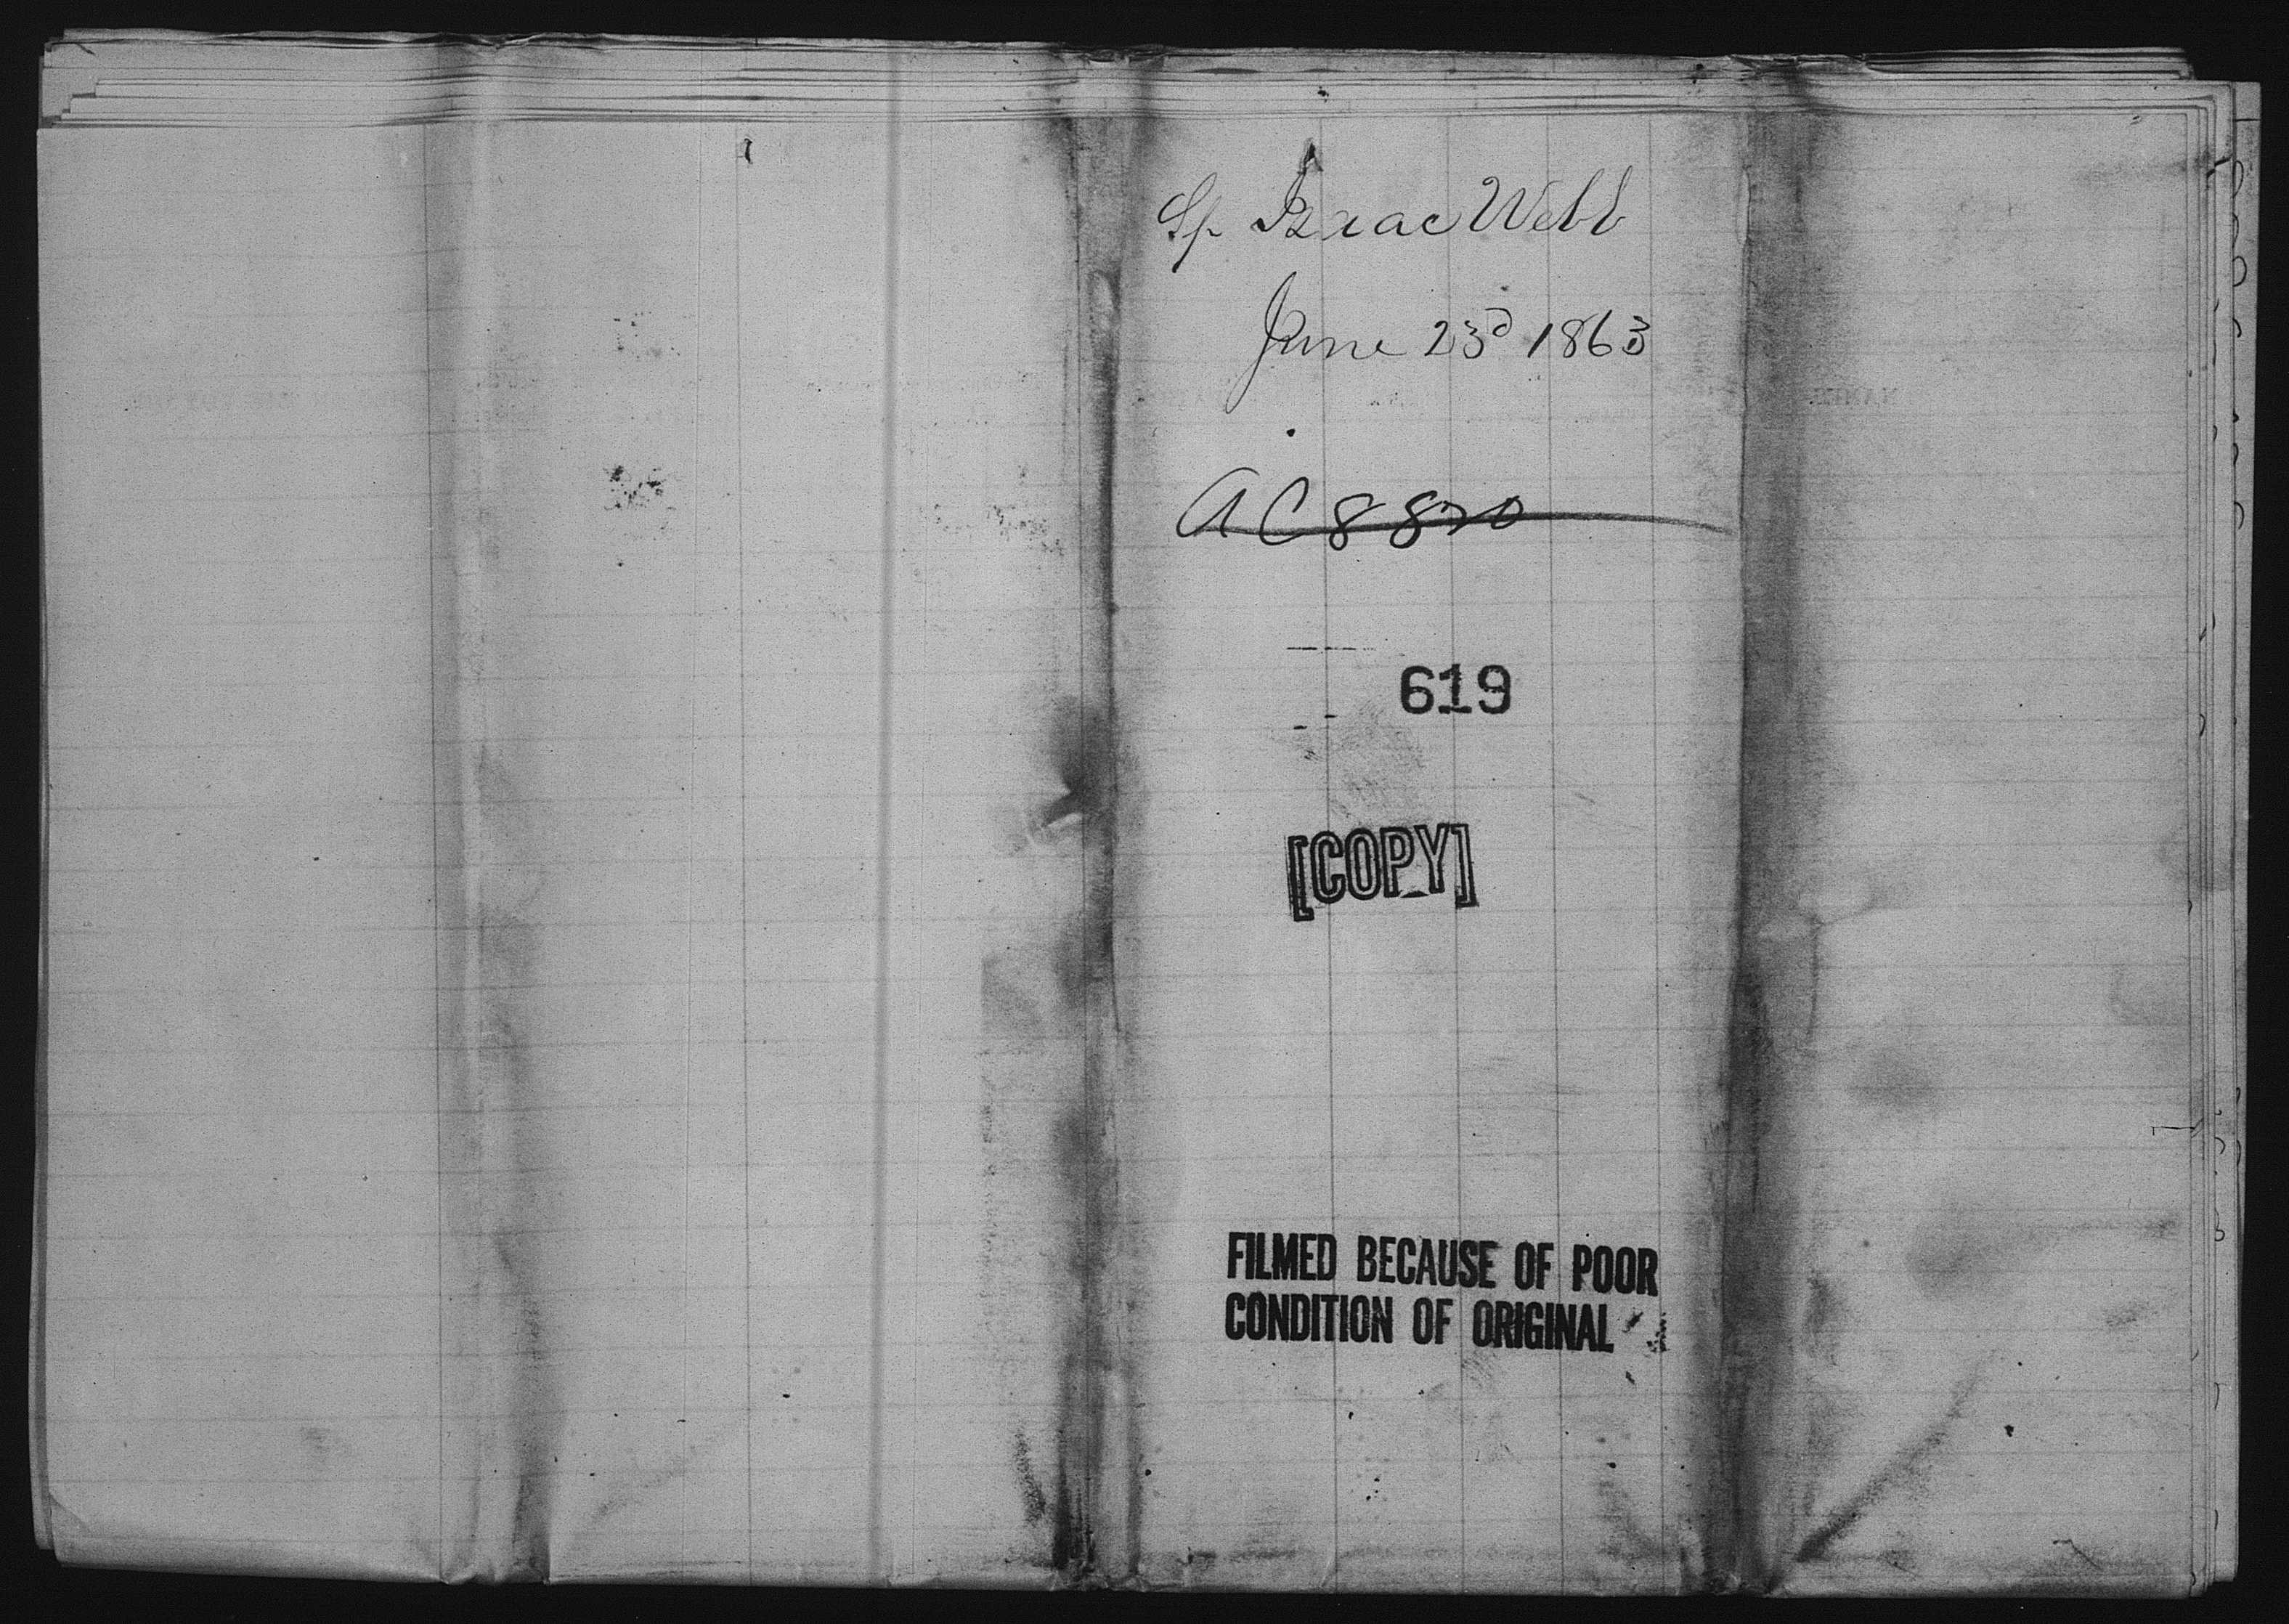 Sp. Isaac Webb
June 23d 1863
AC 8820
619
[COPY]
FILMED BECAUSE OF POOR
CONDITION OF ORIGINAL